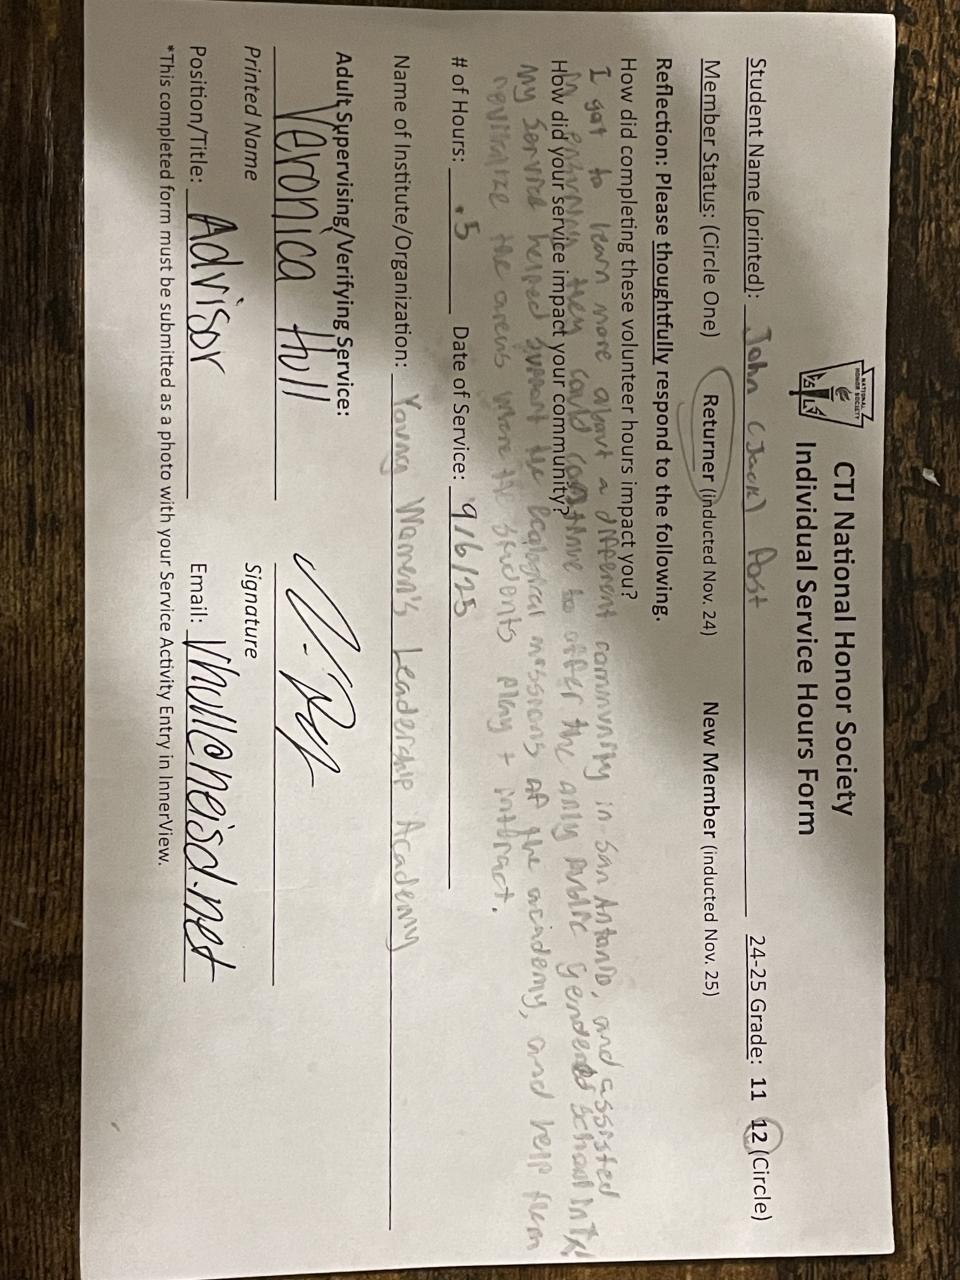 NATIONAL HONOR SOCIETY
CTJ National Honor Society
Individual Service Hours Form
Student Name (printed): John (Jack) Post 24-25 Grade: 11 12 (Circle)
Member Status: (Circle One) Returner (inducted Nov. 24) New Member (inducted Nov. 25)
Reflection: Please thoughtfully respond to the following.
How did completing these volunteer hours impact you?
I got to learn more about a different community in San Antonio, and assisted
in ensuring they could continue to offer the only public gendered school in TX!
How did your service impact your community?
My service helped support the ecological missions of the academy, and help them
revitalize the areas where the students play + interact.
# of Hours: .5 Date of Service: 9/6/25
Name of Institute/Organization: Young Women's Leadership Academy
Adult Supervising/Verifying Service:
Veronica Hull
Printed Name Signature
Position/Title: Advisor Email: Vhull@neisd.net
*This completed form must be submitted as a photo with your Service Activity Entry in InnerView.